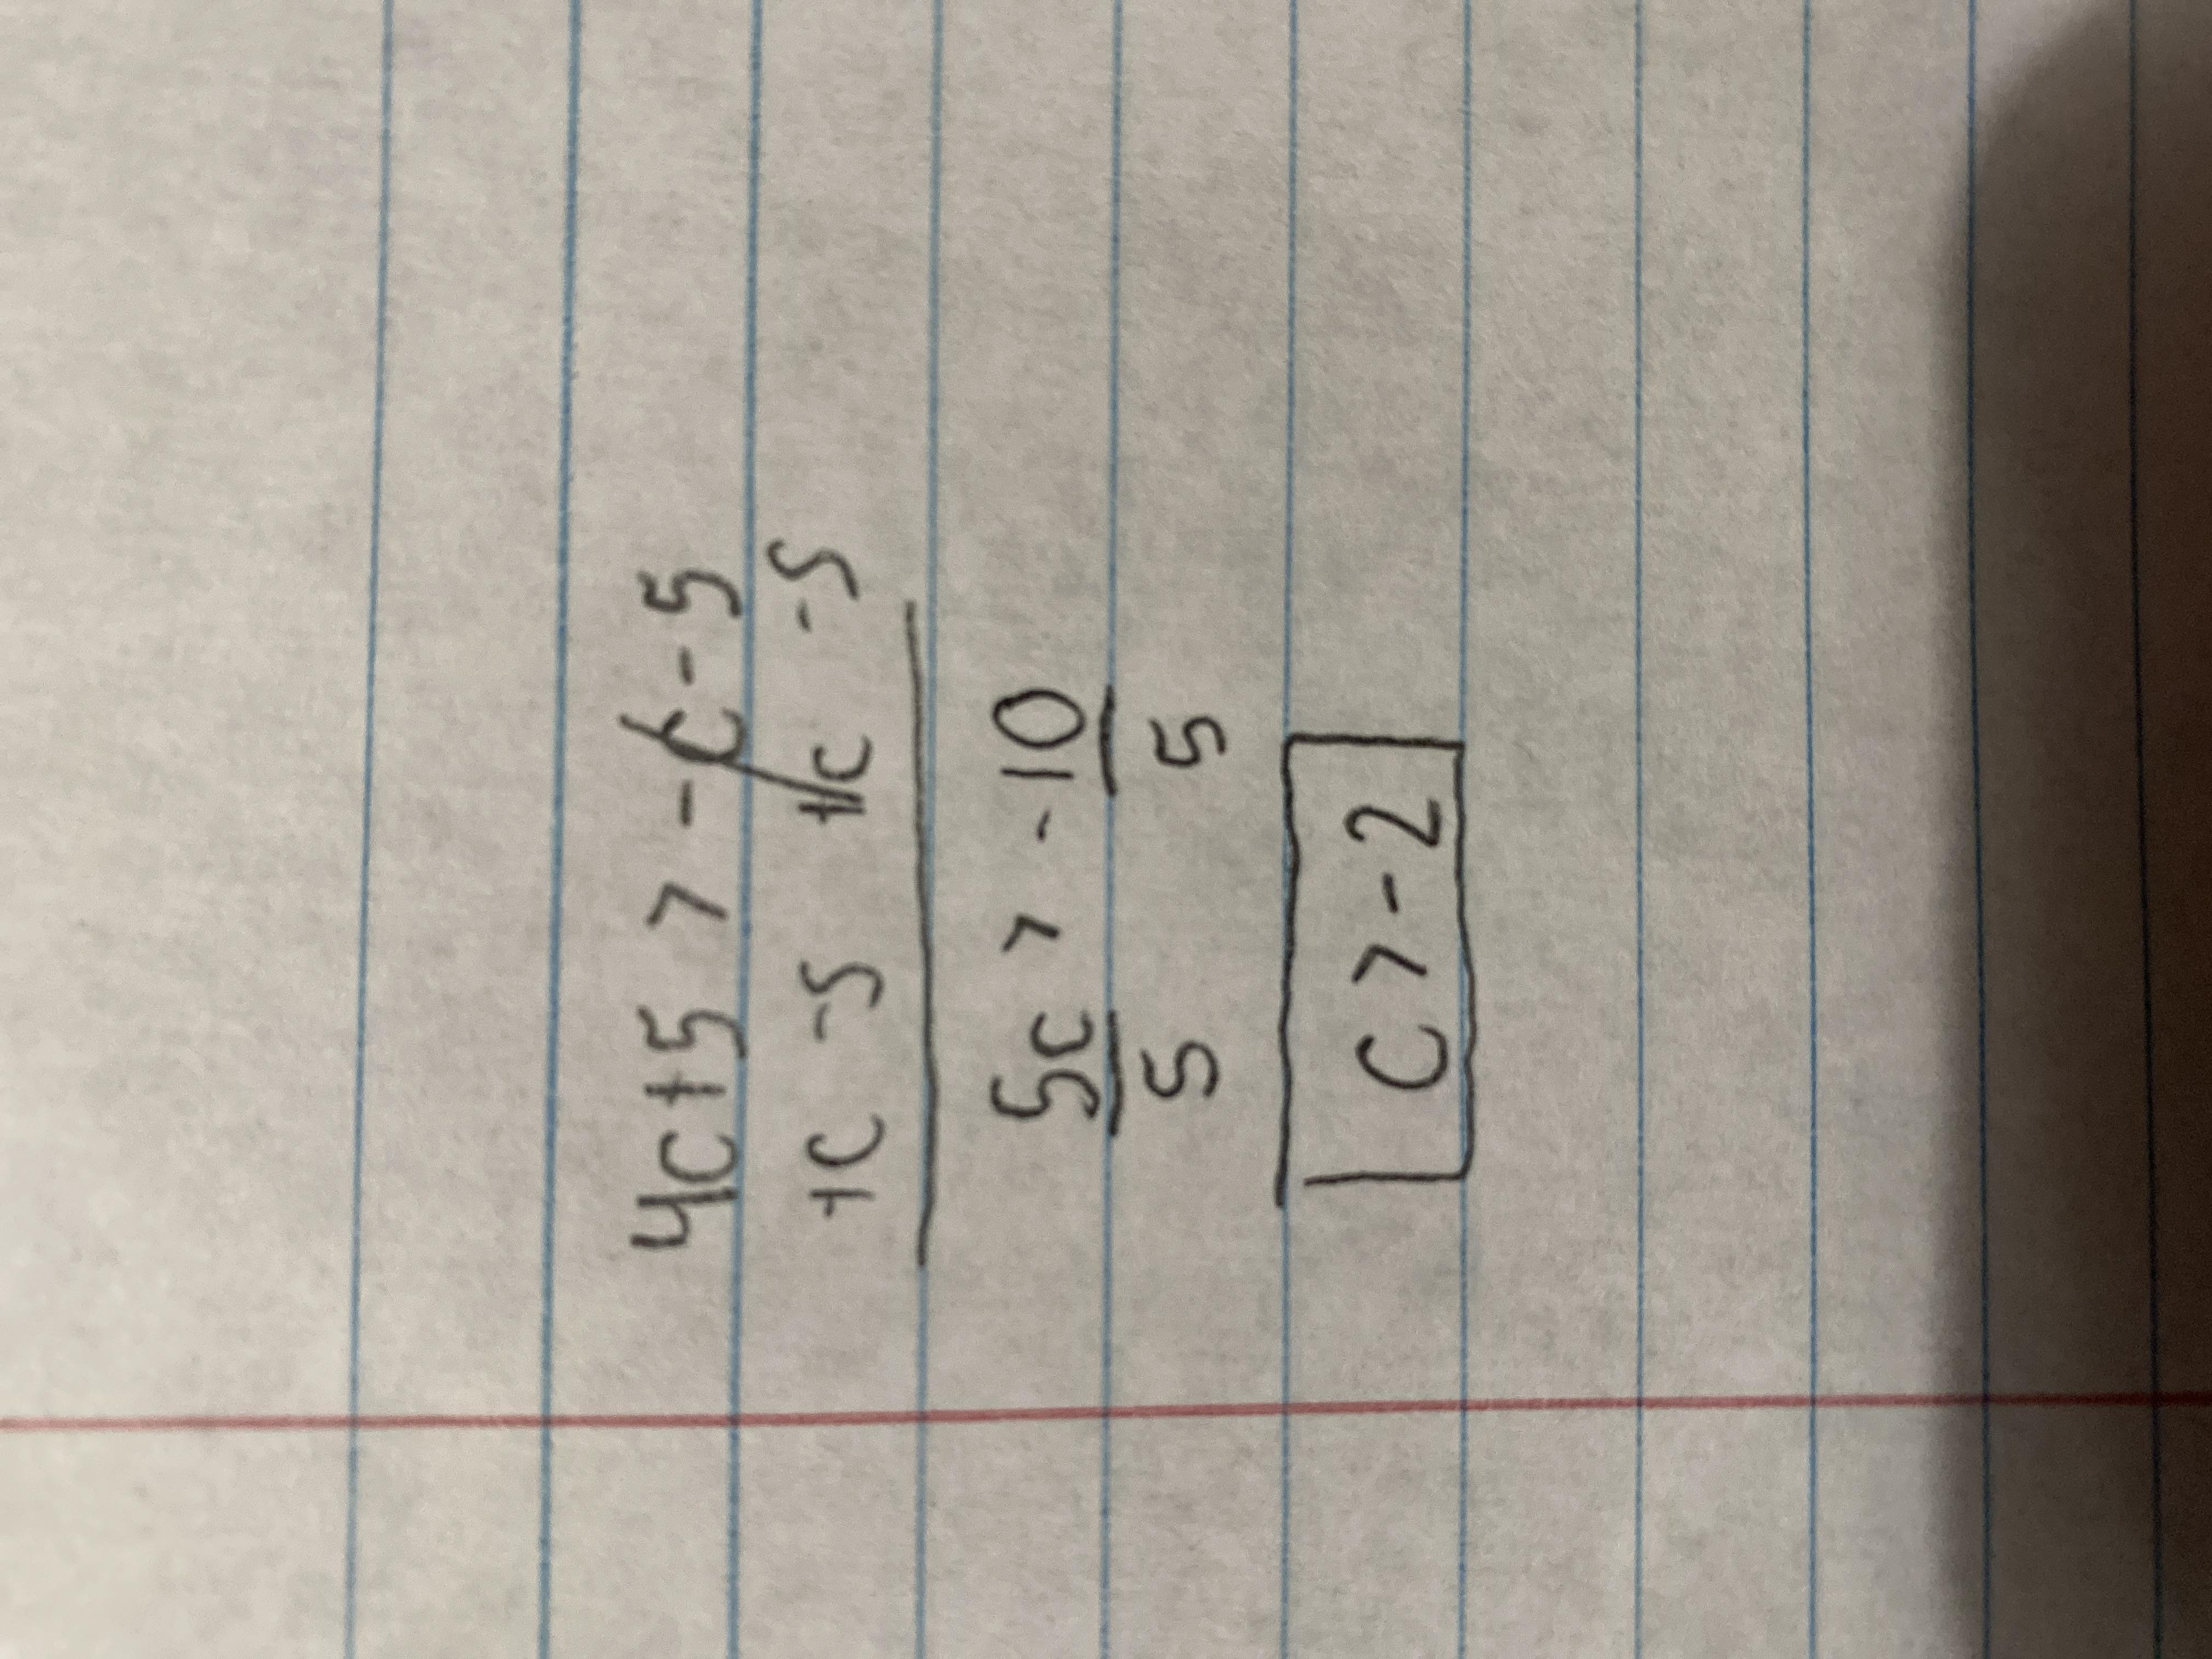 4c+5 > -c-5
+c -5 +c -5
5c > -10
5 5
c > -2